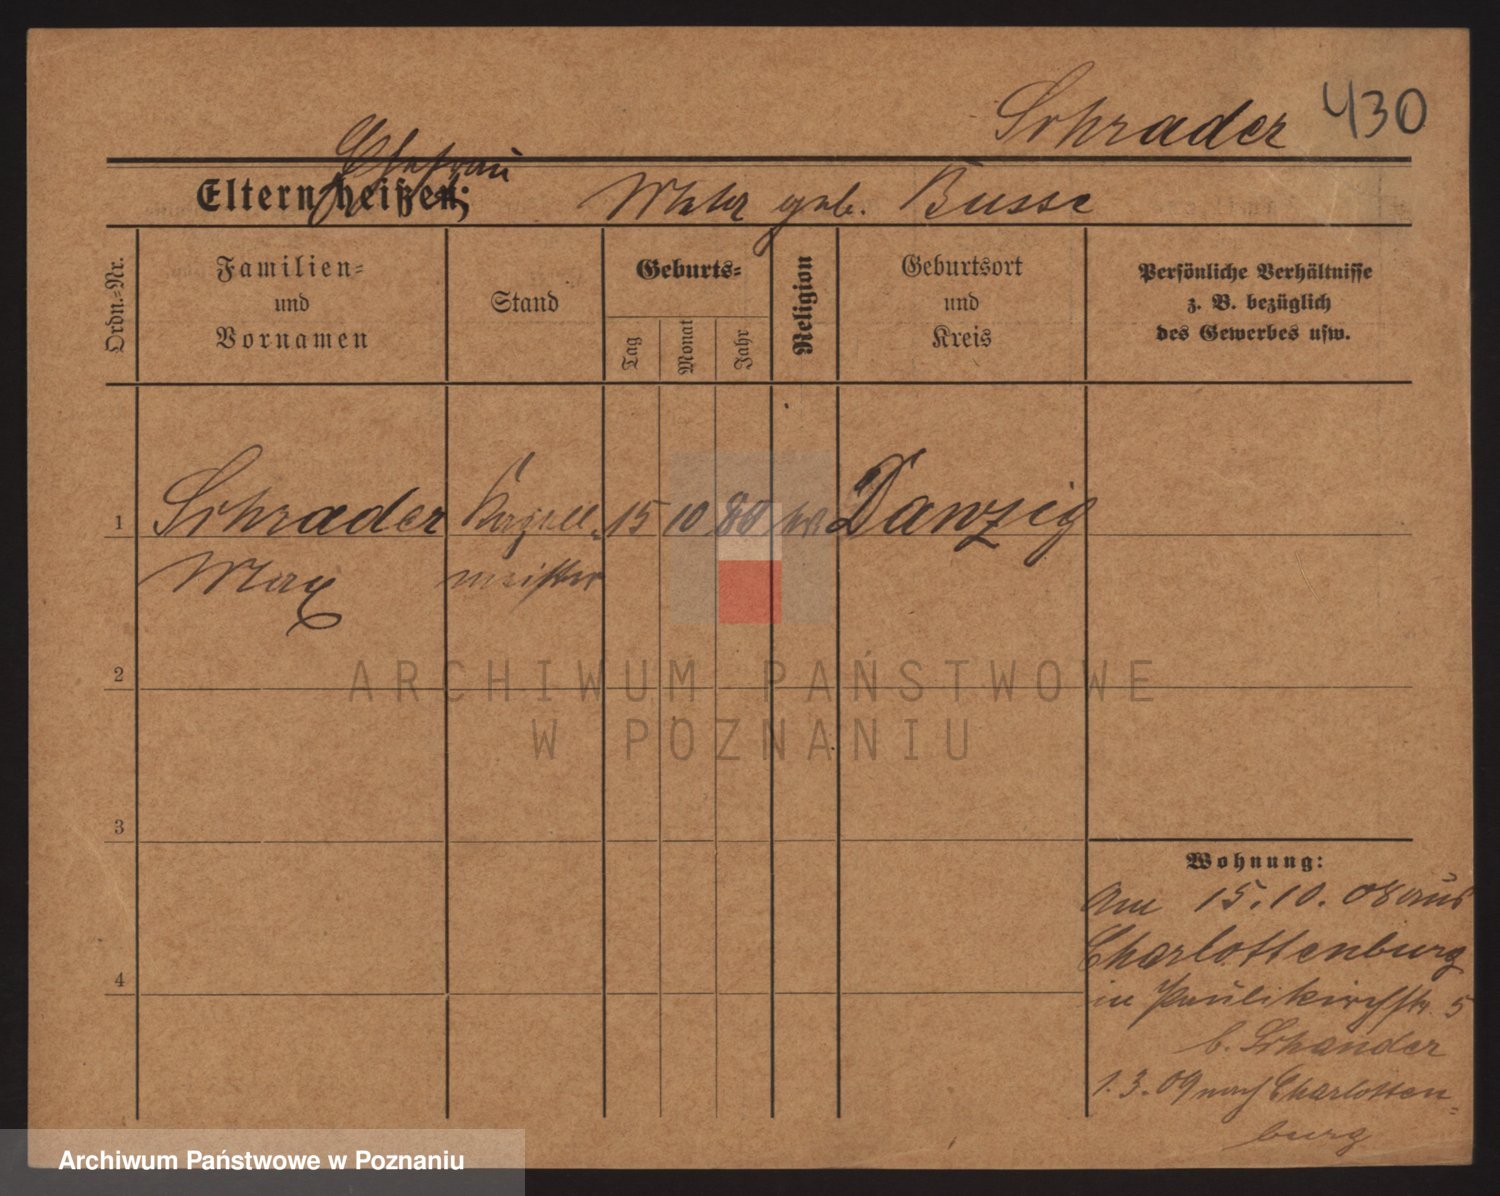 Schrader 430
Ehefrau
Eltern heißen: geb. Busse
Ordn.-Nr.
Familien-
und
Vornamen
Stand
Geburts-
Tag
Monat
Jahr
Religion
Geburtsort
und
Kreis
Persönliche Verhältnisse
z. B. bezüglich
des Gewerbes usw.
1 Schrader Kapell- 15 10 80 Danzig
Max meister
2
ARCHIWUM PAŃSTWOWE
W POZNANIU
3
Wohnung:
Am 15.10.08 aus
Charlottenburg
4
in Paulikirchstr. 5
b.
1.3.09 nach Charlotten-
burg
Archiwum Państwowe w Poznaniu